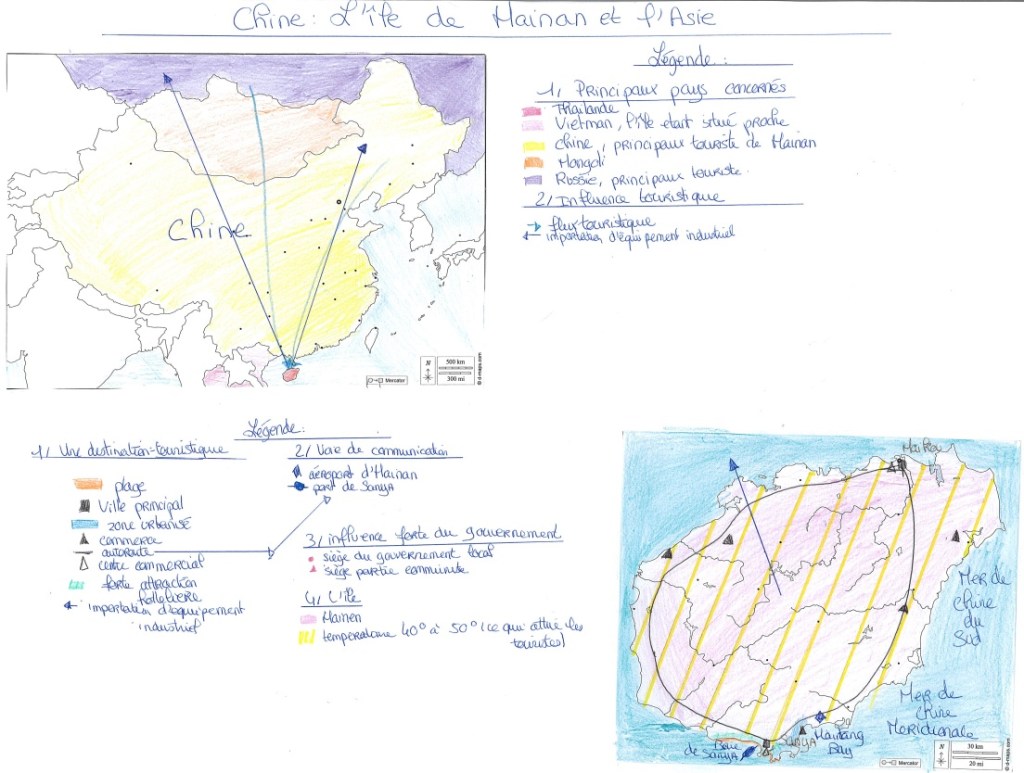 Chine: L'île de Hainan et l'Asie
Légende:
1/ Principaux pays concernés
Thaïlande
Vietman, l'île étant situé proche
chine, principaux touriste de Hainan
Mongoli
Russie, principaux touriste
2/ Influence touristique
flux touristique
importation d'équipement industriel
Chine
N
500 km
300 mi
Mercator
© d-maps.com
Légende:
1/ Une destination touristique
plage
Ville principal
zone urbanisé
commerce
autoroute
centre commercial
forte attraction
hotteliere
importation d'équipement
industriel
2/ Voie de communication
aéroport d'Hainan
port de Sanya
3/ influence forte du gouvernement
siége du gouvernement local
siége partie communiste
4/ L'île
Hainen
temperatome 40° à 50° (ce qui attire les
touristes)
Haikou
Mer de
Chine
du
Sud
Mer de
chine
Meridionale
Baie
de Sanya
Sanya
Haitang
Bay
N
30 km
20 mi
Mercator
© d-maps.com